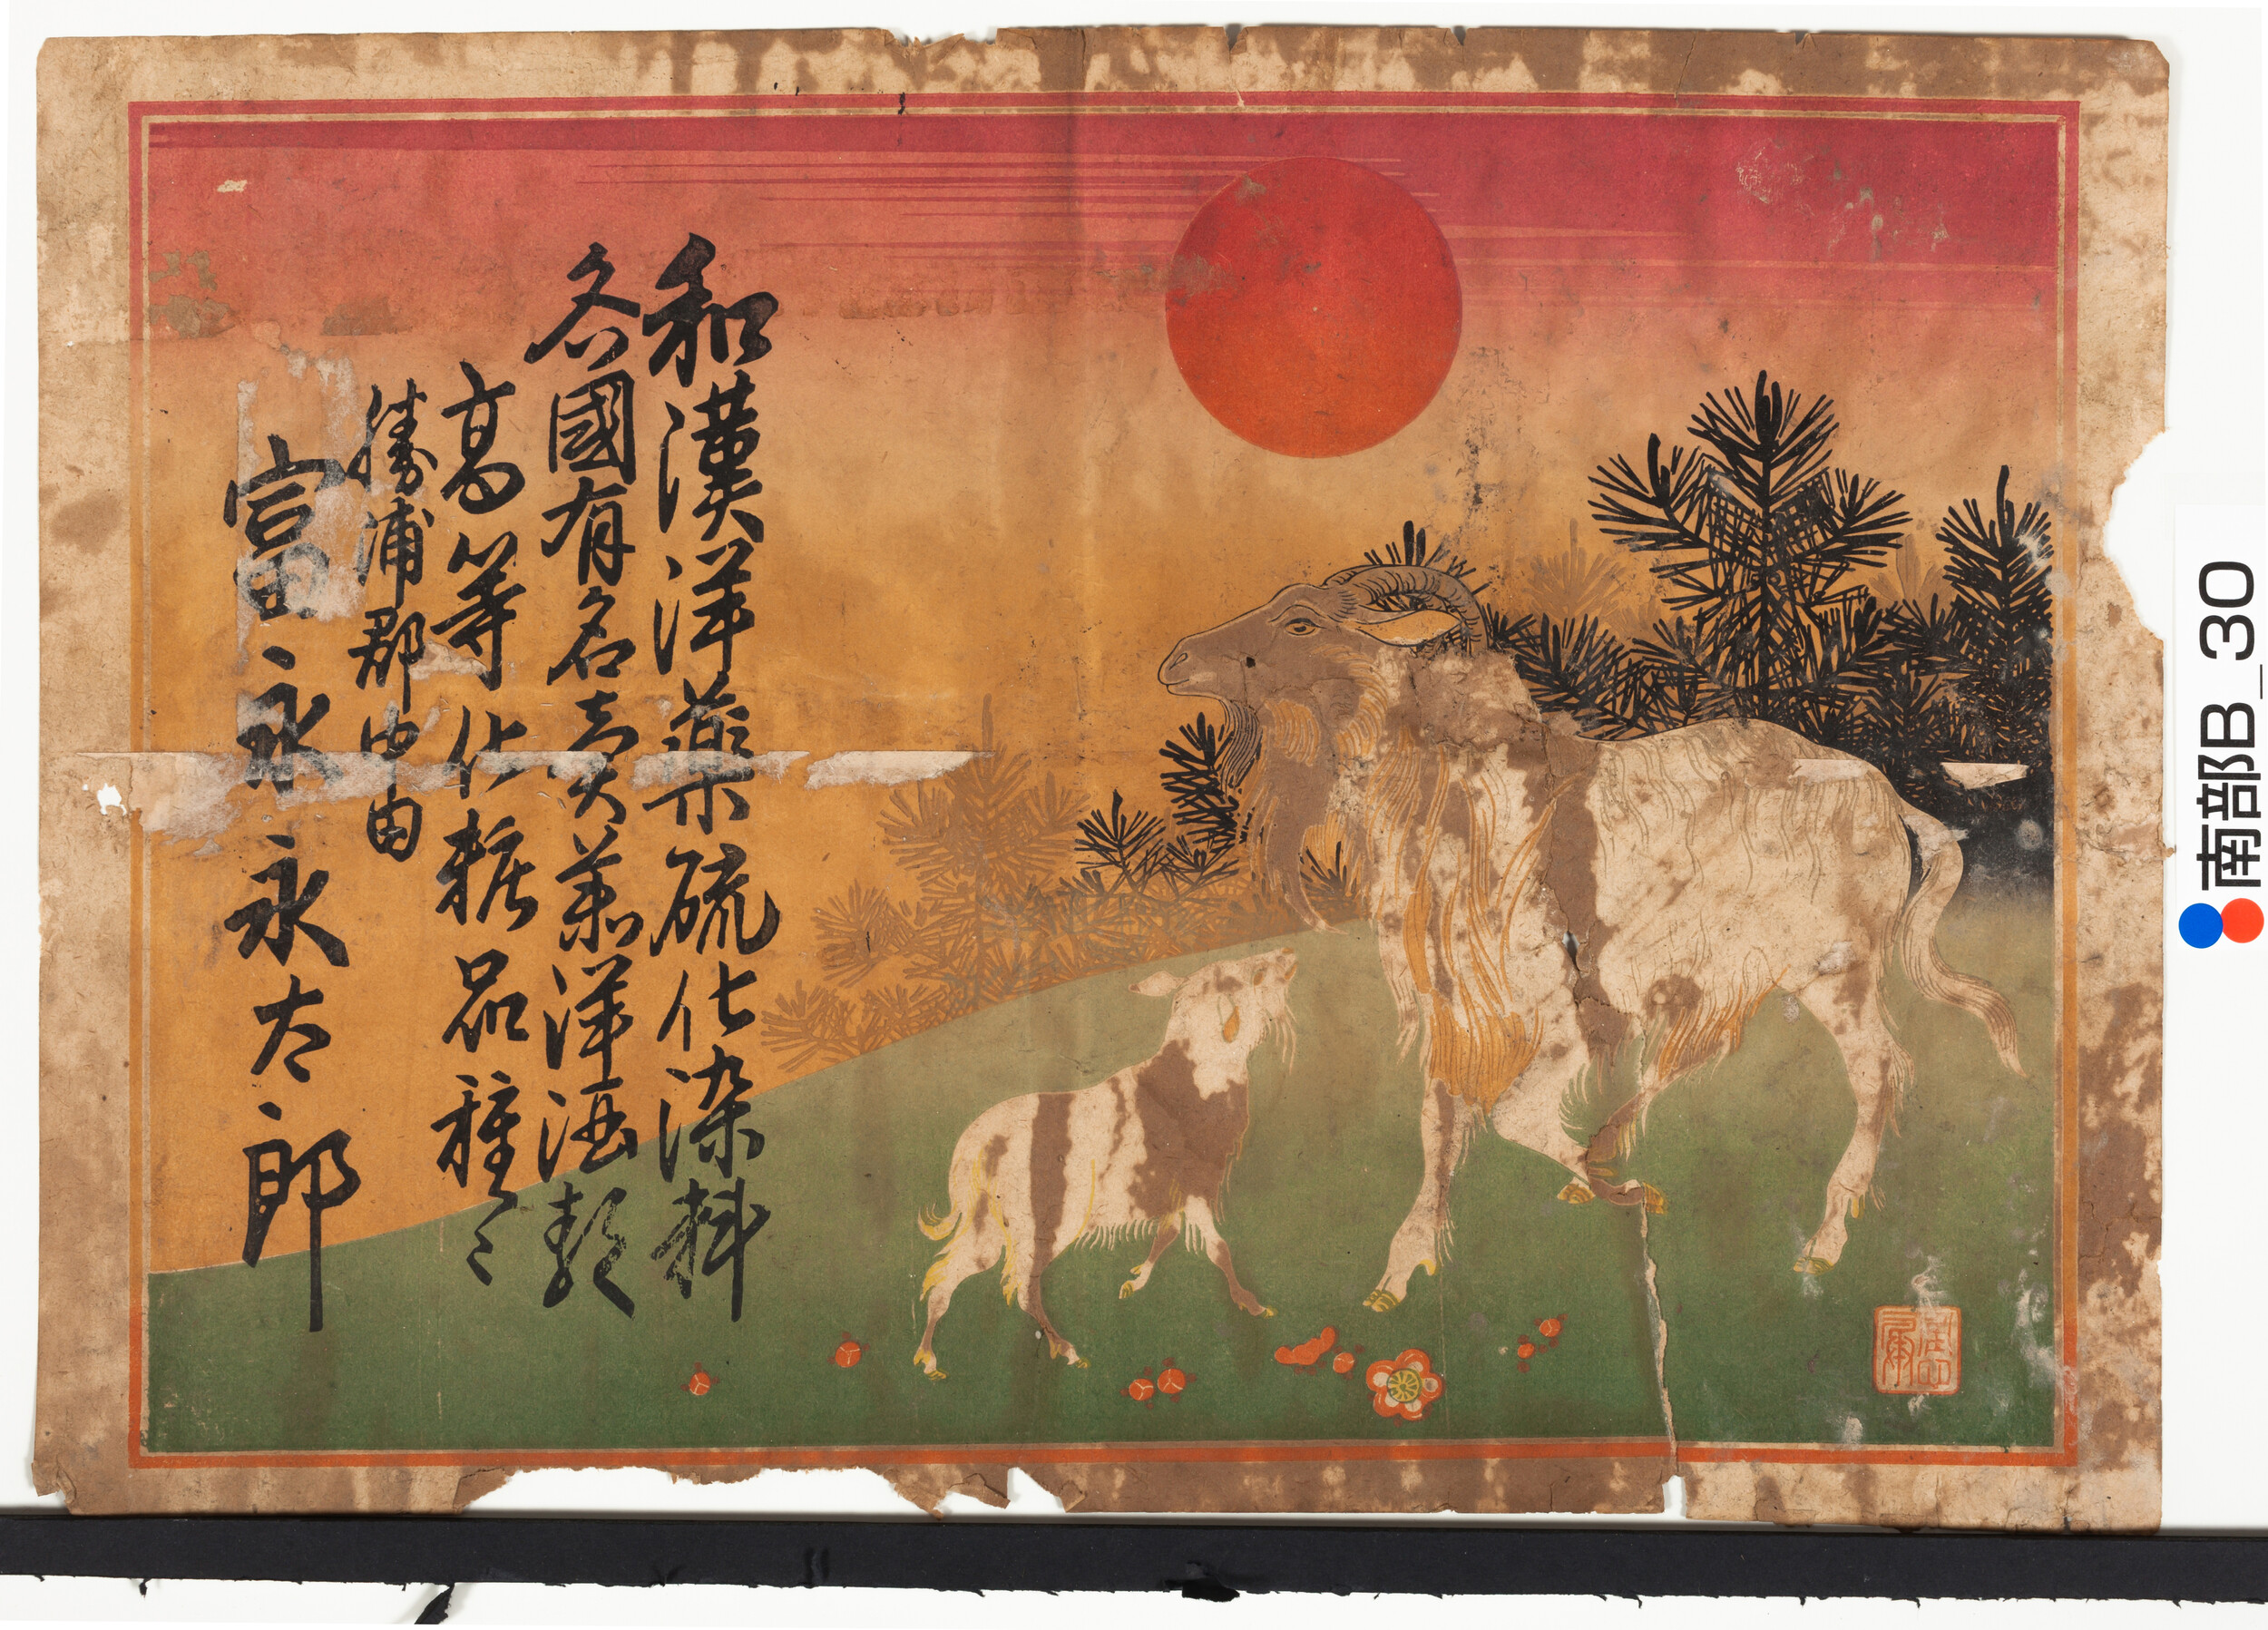 和漢洋薬硫化染料
各國有名売薬和洋酒類
高等化粧品種々
勝浦郡中田
富永永太郎
南部B_30